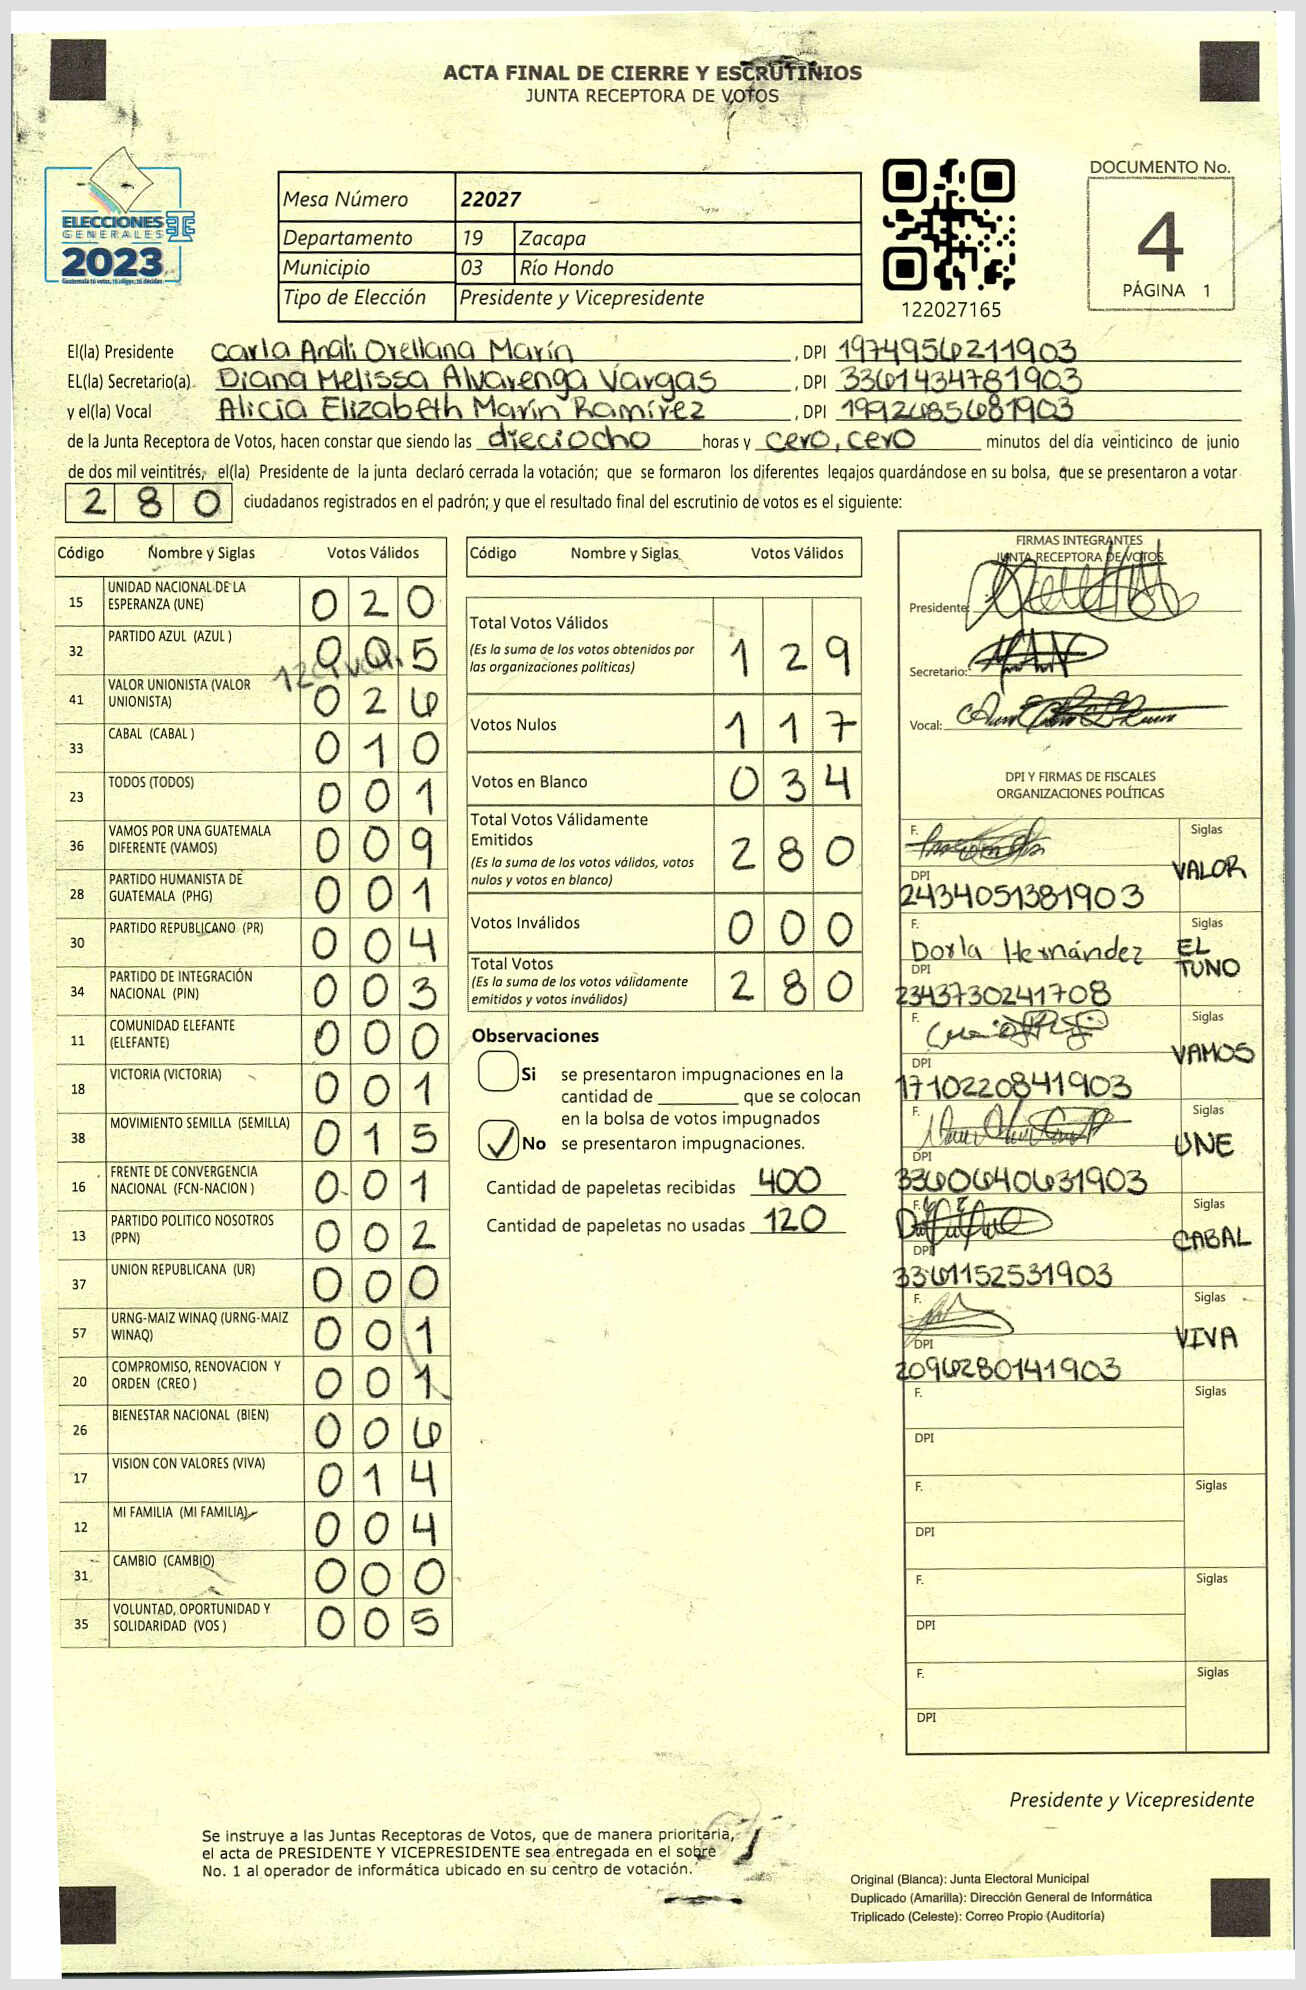 ACTA FINAL DE CIERRE Y ESCRUTINIOS
JUNTA RECEPTORA DE VOTOS
ELECCIONES
GENERALES
2023
Mesa Número 22027
Departamento 19 Zacapa
Municipio 03 Río Hondo
Tipo de Elección Presidente y Vicepresidente
122027165
DOCUMENTO No.
4
PÁGINA 1
El(la) Presidente Carla Anali Orellana Marín, DPI 1974956211903
EL(la) Secretario(a) Diana Melissa Alvarenga Vargas, DPI 3361434781903
y el(la) Vocal Alicia Elizabeth Marín Ramírez, DPI 1992685681903
de la Junta Receptora de Votos, hacen constar que siendo las dieciocho horas y cero, cero minutos del día veinticinco de junio
de dos mil veintitrés, el(la) Presidente de la junta declaró cerrada la votación; que se formaron los diferentes legajos quardándose en su bolsa, que se presentaron a votar
280 ciudadanos registrados en el padrón; y que el resultado final del escrutinio de votos es el siguiente:
Código Nombre y Siglas Votos Válidos
15 UNIDAD NACIONAL DE LA ESPERANZA (UNE) 020
32 PARTIDO AZUL (AZUL ) 005
41 VALOR UNIONISTA (VALOR UNIONISTA) 026
33 CABAL (CABAL ) 010
23 TODOS (TODOS) 001
36 VAMOS POR UNA GUATEMALA DIFERENTE (VAMOS) 009
28 PARTIDO HUMANISTA DE GUATEMALA (PHG) 001
30 PARTIDO REPUBLICANO (PR) 004
34 PARTIDO DE INTEGRACIÓN NACIONAL (PIN) 003
11 COMUNIDAD ELEFANTE (ELEFANTE) 000
18 VICTORIA (VICTORIA) 001
38 MOVIMIENTO SEMILLA (SEMILLA) 015
16 FRENTE DE CONVERGENCIA NACIONAL (FCN-NACION ) 001
13 PARTIDO POLITICO NOSOTROS (PPN) 002
37 UNION REPUBLICANA (UR) 000
57 URNG-MAIZ WINAQ (URNG-MAIZ WINAQ) 001
20 COMPROMISO, RENOVACION Y ORDEN (CREO ) 001
26 BIENESTAR NACIONAL (BIEN) 006
17 VISION CON VALORES (VIVA) 014
12 MI FAMILIA (MI FAMILIA) 004
31 CAMBIO (CAMBIO) 000
35 VOLUNTAD, OPORTUNIDAD Y SOLIDARIDAD (VOS ) 005
Código Nombre y Siglas Votos Válidos
Total Votos Válidos 129
(Es la suma de los votos obtenidos por
las organizaciones políticas)
Votos Nulos 117
Votos en Blanco 034
Total Votos Válidamente
Emitidos 280
(Es la suma de los votos válidos, votos
nulos y votos en blanco)
Votos Inválidos 000
Total Votos 280
(Es la suma de los votos válidamente
emitidos y votos inválidos)
Observaciones
Si se presentaron impugnaciones en la
cantidad de ________ que se colocan
en la bolsa de votos impugnados
✓ No se presentaron impugnaciones.
Cantidad de papeletas recibidas 400
Cantidad de papeletas no usadas 120
FIRMAS INTEGRANTES
JUNTA RECEPTORA DE VOTOS
Presidente:
Secretario:
Vocal:
DPI Y FIRMAS DE FISCALES
ORGANIZACIONES POLÍTICAS
F. Siglas
VALOR
DPI
2434051381903
F. Siglas
Dorla Hernández EL TUNO
DPI
2343730241708
F. Siglas
VAMOS
DPI
1710220841903
F. Siglas
UNE
DPI
3360640631903
F. Siglas
CABAL
DPI
3361152531903
F. Siglas
VIVA
DPI
2096280141903
F. Siglas
DPI
F. Siglas
DPI
F. Siglas
DPI
F. Siglas
DPI
Presidente y Vicepresidente
Se instruye a las Juntas Receptoras de Votos, que de manera prioritaria,
el acta de PRESIDENTE Y VICEPRESIDENTE sea entregada en el sobre
No. 1 al operador de informática ubicado en su centro de votación.
Original (Blanca): Junta Electoral Municipal
Duplicado (Amarilla): Dirección General de Informática
Triplicado (Celeste): Correo Propio (Auditoría)